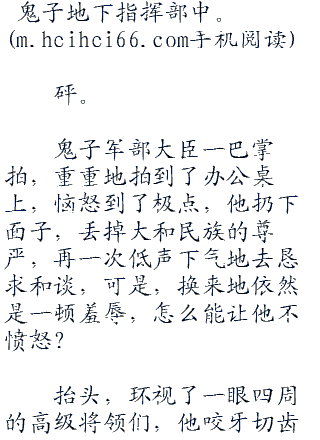 鬼子地下指挥部中。
(m.hcihci66.com手机阅读)
砰。
鬼子军部大臣一巴掌
拍，重重地拍到了办公桌
上，恼怒到了极点，他扔下
面子，丢掉大和民族的尊
严，再一次低声下气地去恳
求和谈，可是，换来地依然
是一顿羞辱，怎么能让他不
愤怒？
抬头，环视了一眼四周
的高级将领们，他咬牙切齿